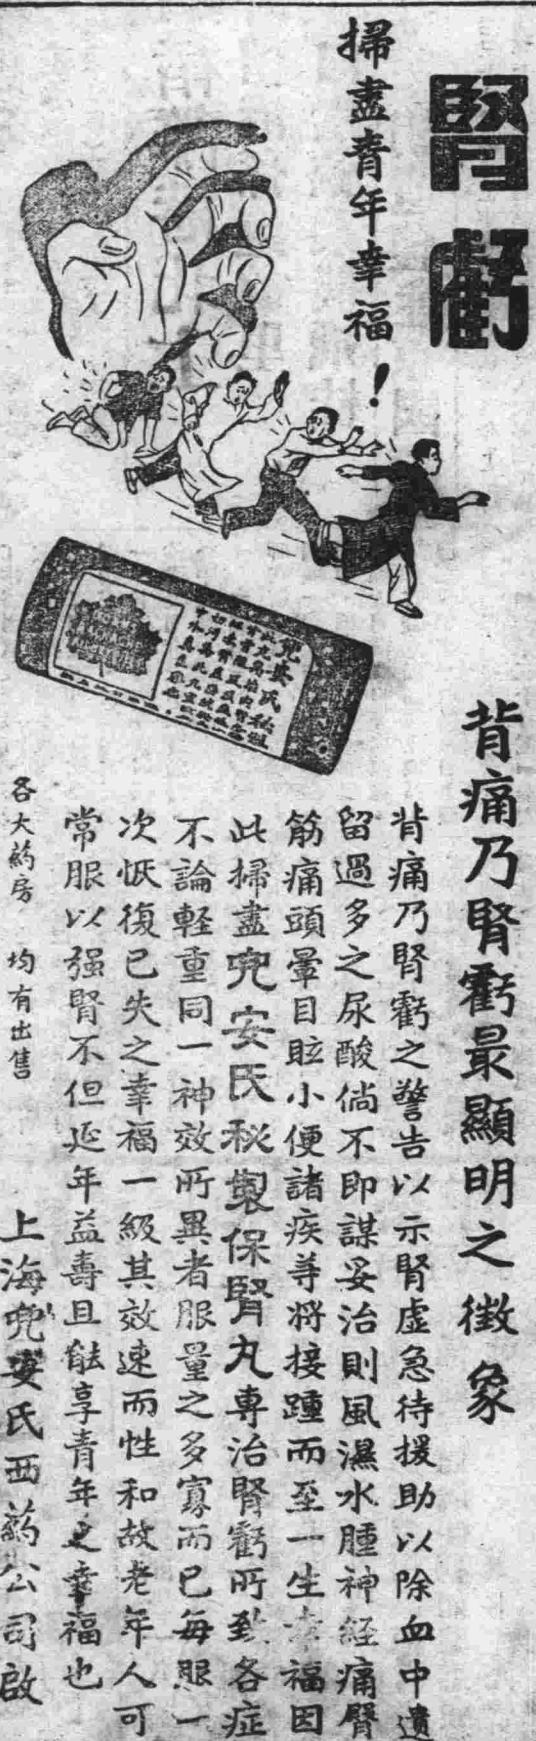 腎虧
掃盡青年幸福！
背痛乃腎虧最顯明之徵象
背痛乃腎虧之警告以示腎虛急待援助以除血中遺
留過多之尿酸倘不即謀妥治則風濕水腫神經痛臀
筋痛頭暈目眩小便諸疾等將接踵而至一生幸福因
此掃盡兜安氏秘製保腎丸專治腎虧所致各症
不論輕重同一神效所異者服量之多寡而已每服一
次恢復已失之幸福一級其效速而性和故老年人可
常服以强腎不但延年益壽且能享青年之幸福也
各大葯房 均有出售
上海兜安氏西葯公司啟
兜安氏秘製